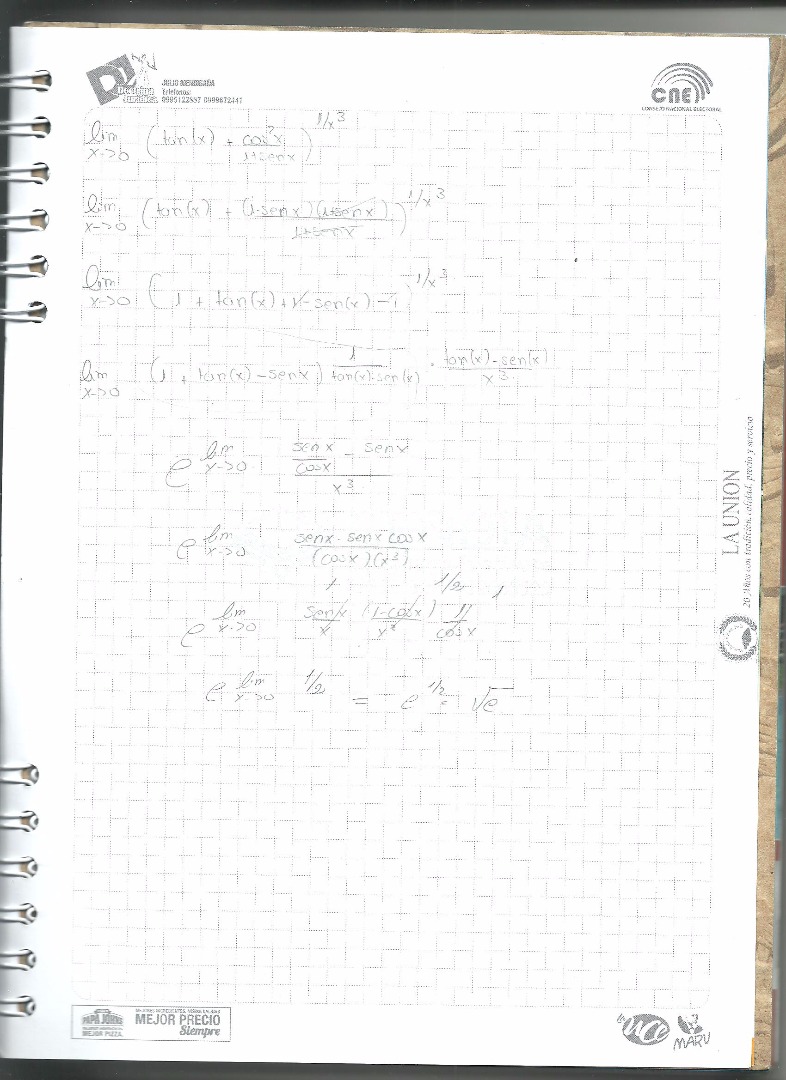 JULIO
Teléfonos:
0995122897 0999872441
CNE
CONSEJO NACIONAL ELECTORAL
lim x->0 (tan(x) + cos²x / 1+senx)^1/x³
lim x->0 (tan(x) + (1-senx)(1+senx) / 1+senx)^1/x³
lim x->0 (1 + tan(x) + 1 - sen(x) - 1)^1/x³
lim x->0 (1 + tan(x) - senx)^1/tan(x)-sen(x) · tan(x)-sen(x)/x³
e^lim x->0 (senx/cosx - senx) / x³
e^lim x->0 senx - senx cosx / (cosx)(x³)
1 1/2 1
e^lim x->0 senx/x (1-cosx)/x² 1/cosx
e^lim x->0 1/2 = e^1/2 = √e
LA UNION
20 Años con tradición, calidad, precio y servicio
PAPA JOHNS
MEJOR PIZZA
MEJOR PRECIO
Siempre
uce
MARU